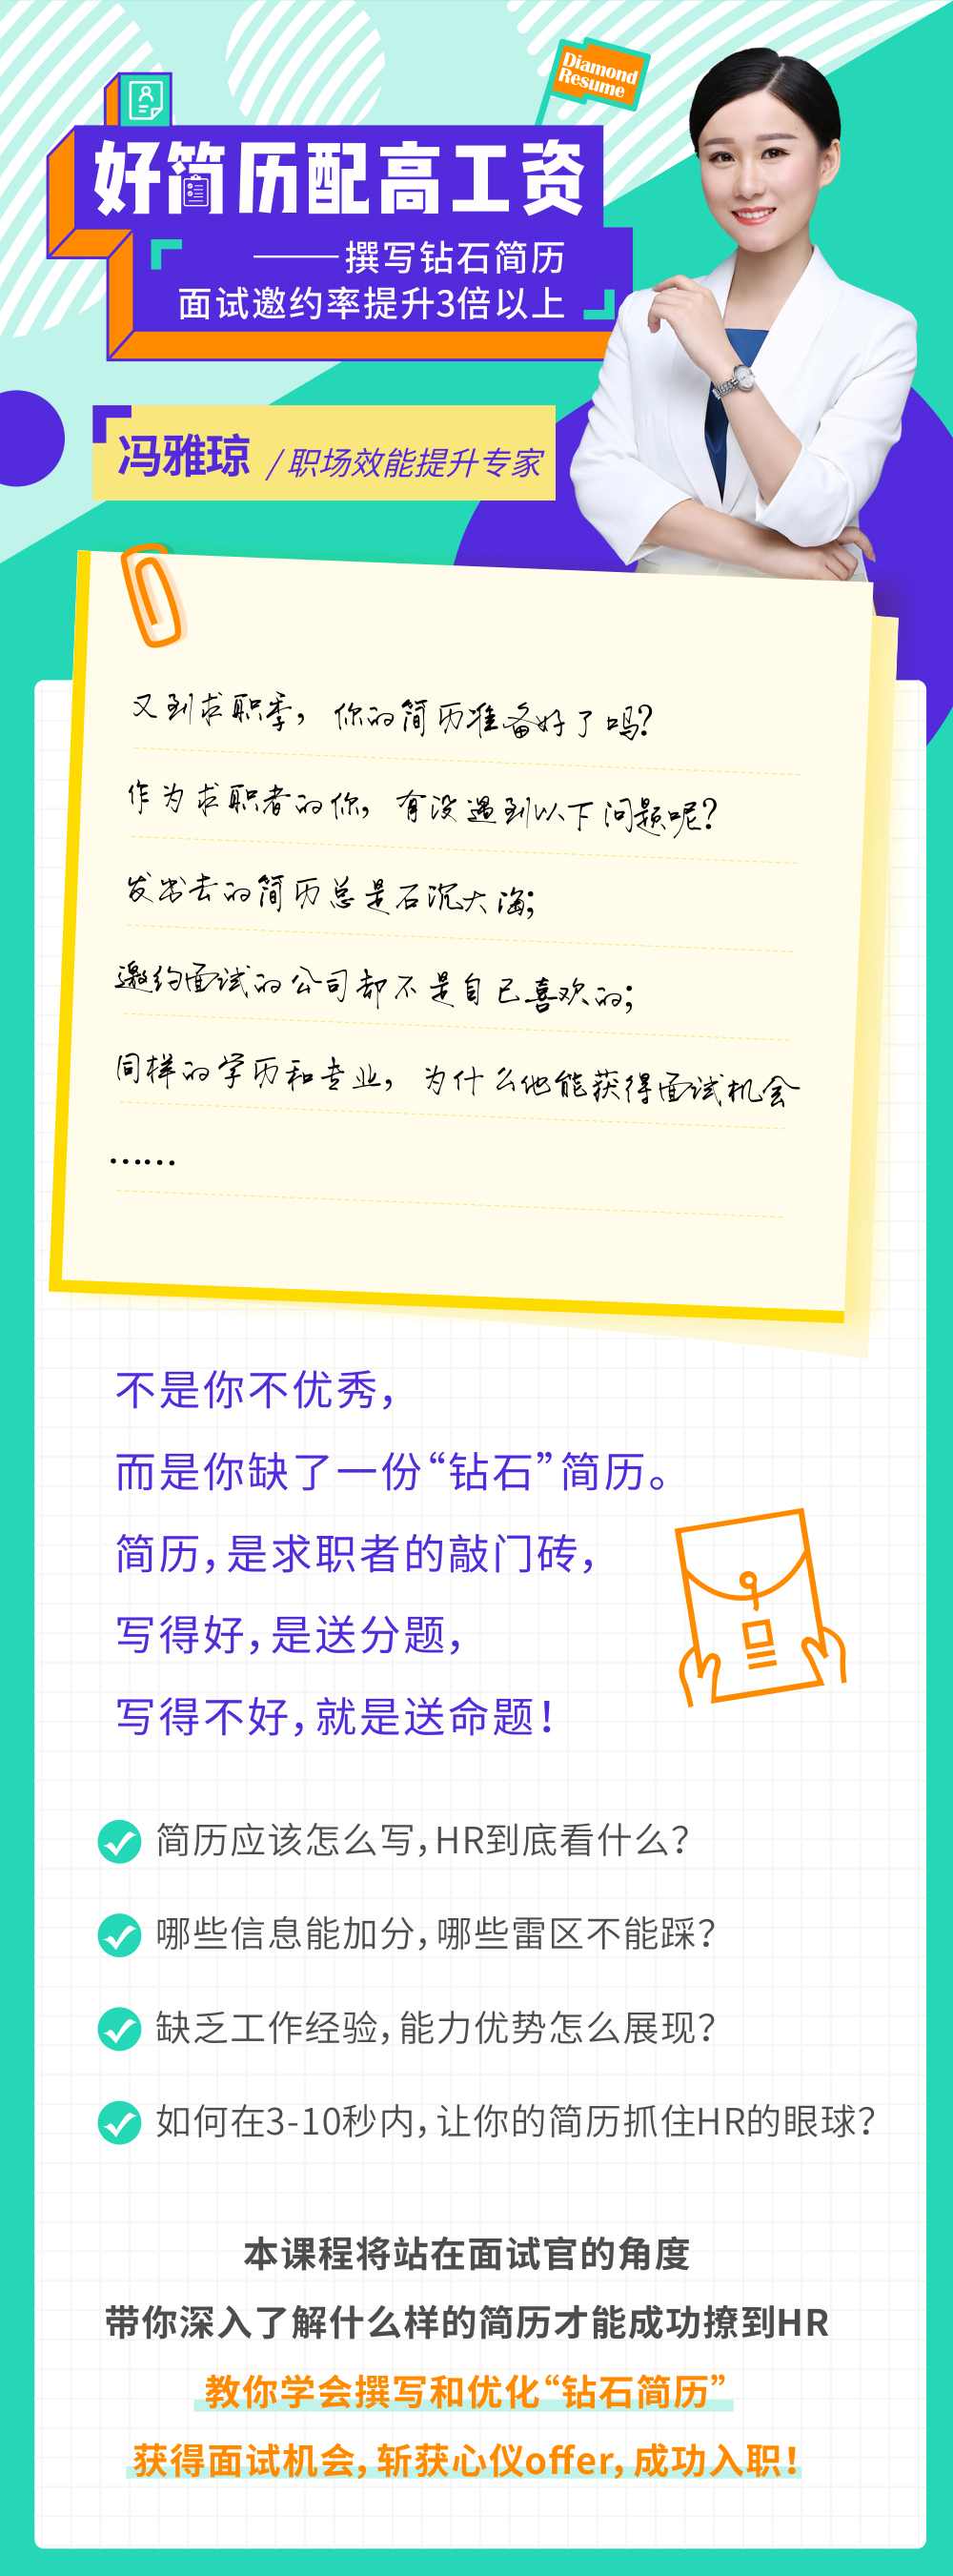 Diamond
Resume
好简历配高工资
——撰写钻石简历
面试邀约率提升3倍以上
冯雅琼 / 职场效能提升专家
又到求职季，你的简历准备好了吗?
作为求职者的你，有没遇到以下问题呢?
发出去的简历总是石沉大海;
邀约面试的公司都不是自己喜欢的;
同样的学历和专业，为什么他能获得面试机会
……
不是你不优秀，
而是你缺了一份“钻石”简历。
简历，是求职者的敲门砖，
写得好，是送分题，
写得不好，就是送命题！
简历应该怎么写，HR到底看什么？
哪些信息能加分，哪些雷区不能踩？
缺乏工作经验，能力优势怎么展现？
如何在3-10秒内，让你的简历抓住HR的眼球？
本课程将站在面试官的角度
带你深入了解什么样的简历才能成功撩到HR
教你学会撰写和优化“钻石简历”
获得面试机会，斩获心仪offer，成功入职！